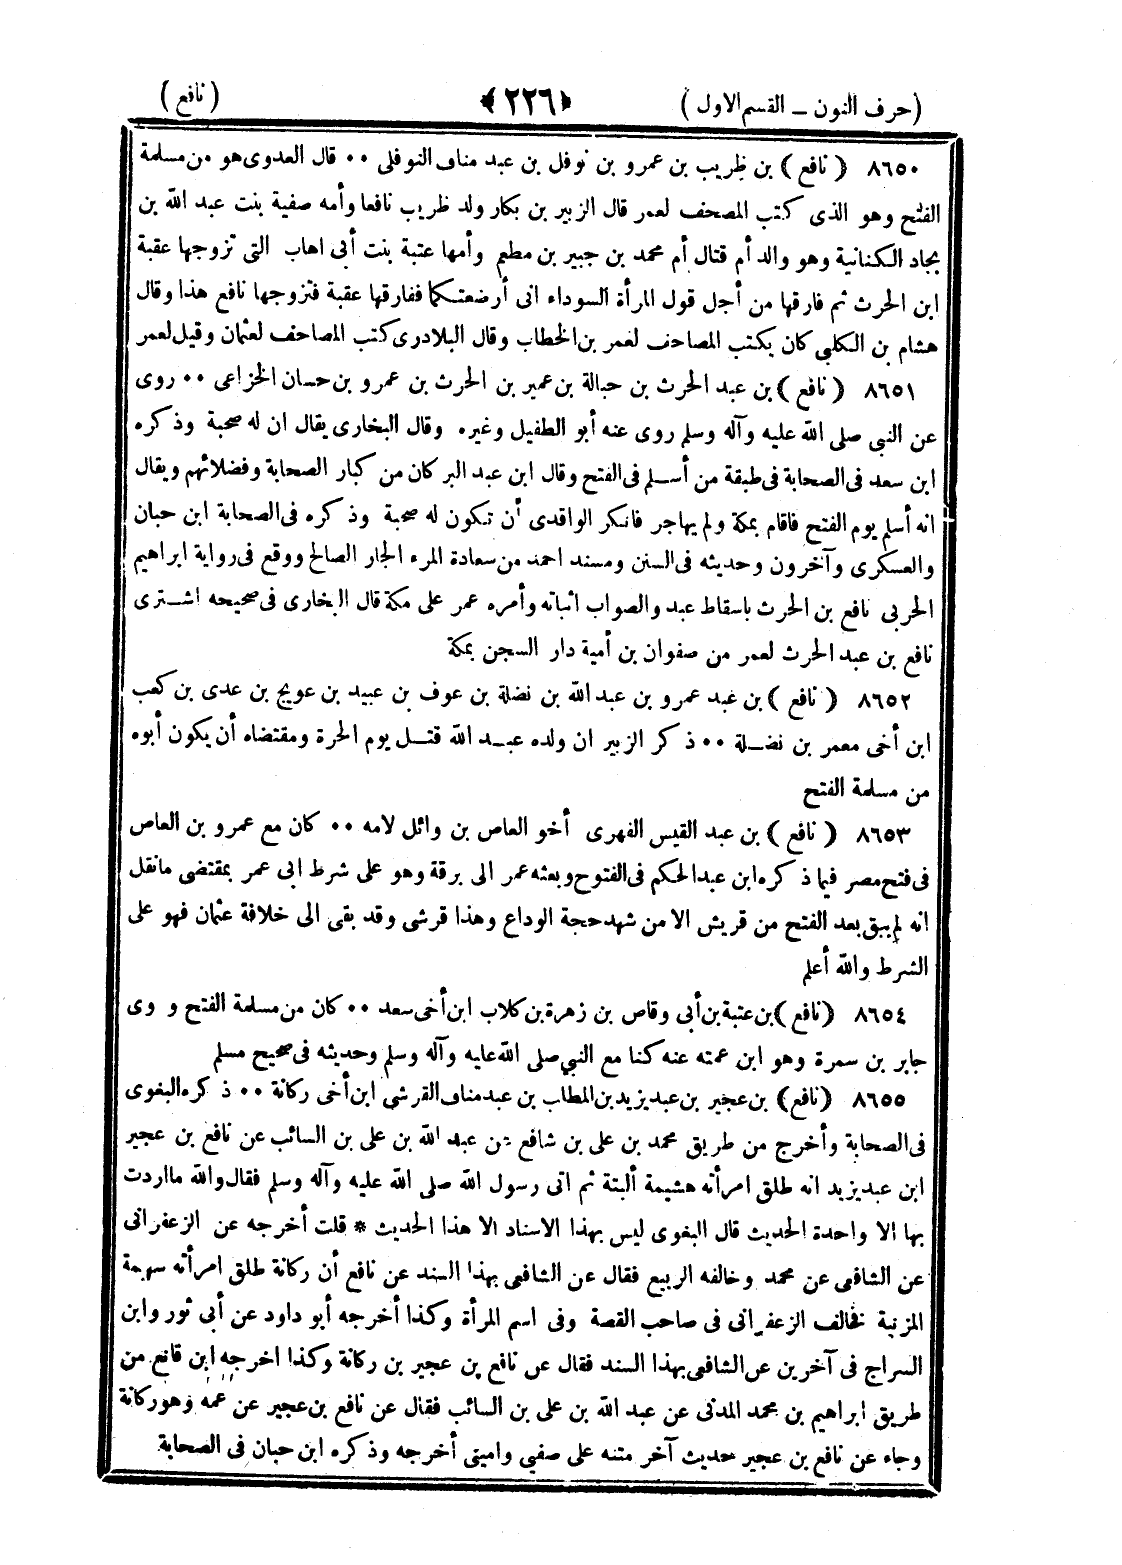 (حرف النون ــ القسم الاول) ﴿٢٢٦﴾ (نافع)
٨٦٥٠ (نافع) بن ظريب بن عمرو بن نوفل بن عبد مناف النوفلى ٠٠ قال العدوى هو من مسلمة
الفتح وهو الذى كتب المصحف لعمر قال الزبير بن بكار ولد ظريب نافعا وأمه صفية بنت عبد الله بن
بجاد الكنانية وهو والد أم قتال أم محمد بن جبير بن مطعم وأمها عتبة بنت أبى اهاب التى تزوجها عقبة
ابن الحرث ثم فارقها من أجل قول المرأة السوداء انى أرضعتكما ففارقها عقبة فتزوجها نافع هذا وقال
هشام بن الكلبى كان يكتب المصاحف لعمر بن الخطاب وقال البلادرى كتب المصاحف لعثمان وقيل لعمر
٨٦٥١ (نافع) بن عبد الحرث بن حبالة بن عمير بن الحرث بن عمرو بن حسان الخزاعى ٠٠ روى
عن النبى صلى الله عليه وآله وسلم روى عنه أبو الطفيل وغيره وقال البخارى يقال ان له صحبة وذكره
ابن سعد فى الصحابة فى طبقة من أسلم فى الفتح وقال ابن عبد البر كان من كبار الصحابة وفضلائهم ويقال
انه أسلم يوم الفتح فاقام بمكة ولم يهاجر فانكر الواقدى أن تكون له صحبة وذكره فى الصحابة ابن حبان
والعسكرى وآخرون وحديثه فى السنن ومسند احمد من سعادة المرء الجار الصالح ووقع فى رواية ابراهيم
الحربى نافع بن الحرث باسقاط عبد والصواب اثباته وأمره عمر على مكة قال البخارى فى صحيحه اشترى
نافع بن عبد الحرث لعمر من صفوان بن أمية دار السجن بمكة
٨٦٥٢ (نافع) بن عبد عمرو بن عبد الله بن نضلة بن عوف بن عبيد بن عويج بن عدى بن كعب
ابن أخى معمر بن نضلة ٠٠ ذكر الزبير ان ولده عبد الله قتل يوم الحرة ومقتضاه أن يكون أبوه
من مسلمة الفتح
٨٦٥٣ (نافع) بن عبد القيس الفهرى أخو العاص بن وائل لامه ٠٠ كان مع عمرو بن العاص
فى فتح مصر فيما ذكره ابن عبد الحكم فى الفتوح وبعثه عمر الى برقة وهو على شرط ابى عمر بمقتضى مانقل
انه لم يبق بعد الفتح من قريش الا من شهد حجة الوداع وهذا قرشى وقد بقى الى خلافة عثمان فهو على
الشرط والله أعلم
٨٦٥٤ (نافع) بن عتبة بن أبى وقاص بن زهرة بن كلاب ابن أخى سعد ٠٠ كان من مسلمة الفتح و وى
جابر بن سمرة وهو ابن عمته عنه كنا مع النبى صلى الله عليه وآله وسلم وحديثه فى صحيح مسلم
٨٦٥٥ (نافع) بن عجير بن عبد يزيد بن المطلب بن عبد مناف القرشى ابن أخى ركانة ٠٠ ذكره البغوى
فى الصحابة وأخرج من طريق محمد بن على بن شافع عن عبد الله بن على بن السائب عن نافع بن عجير
ابن عبد يزيد انه طلق امرأته هشيمة ألبتة ثم اتى رسول الله صلى الله عليه وآله وسلم فقال والله ما اردت
بها الا واحدة الحديث قال البغوى ليس بهذا الاسناد الا هذا الحديث * قلت أخرجه عن الزعفرانى
عن الشافعى عن محمد وخالفه الربيع فقال عن الشافعى بهذا السند عن نافع أن ركانة طلق امرأته سهيمة
المزنية فخالف الزعفرانى فى صاحب القصة وفى اسم المرأة وكذا أخرجه أبو داود عن أبى ثور وابن
السراج فى آخرين عن الشافعى بهذا السند فقال عن نافع بن عجير بن ركانة وكذا اخرجه ابن قانع من
طريق ابراهيم بن محمد المدنى عن عبد الله بن على بن السائب فقال عن نافع بن عجير عن عمه وهو ركانة
وجاء عن نافع بن عجير حديث آخر متنه على صفيى وامينى أخرجه وذكره ابن حبان فى الصحابة